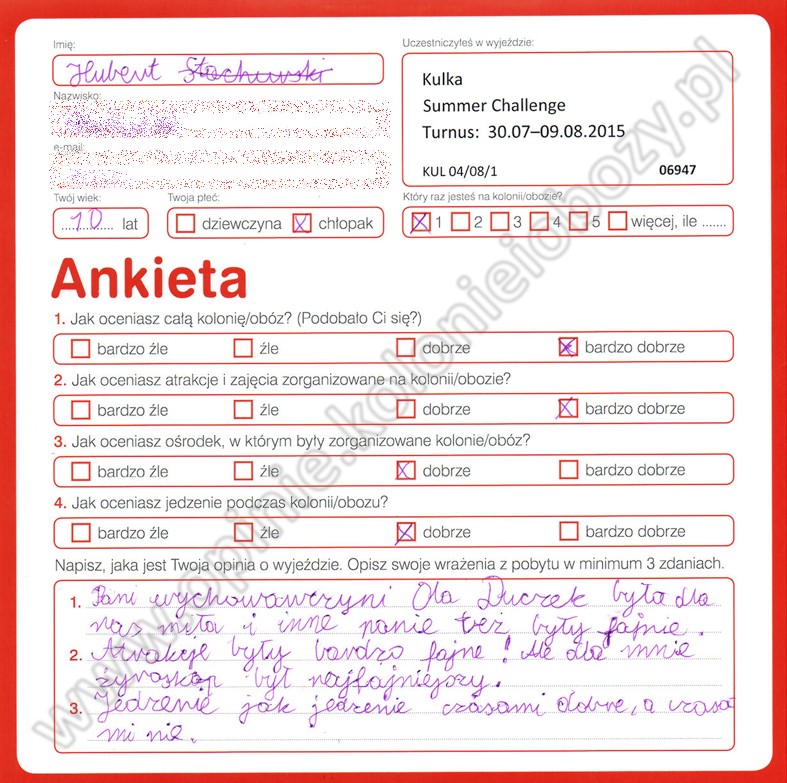 Imię:
Hubert
Uczestniczyłeś w wyjeździe:
Kulka
Summer Challenge
Turnus: 30.07–09.08.2015
KUL 04/08/1 06947
Nazwisko:
e-mail:
Twój wiek:
10 lat
Twoja płeć:
dziewczyna chłopak
Który raz jesteś na kolonii/obozie?
1 2 3 4 5 więcej, ile .......
Ankieta
1. Jak oceniasz całą kolonię/obóz? (Podobało Ci się?)
bardzo źle źle dobrze bardzo dobrze
2. Jak oceniasz atrakcje i zajęcia zorganizowane na kolonii/obozie?
bardzo źle źle dobrze bardzo dobrze
3. Jak oceniasz ośrodek, w którym były zorganizowane kolonie/obóz?
bardzo źle źle dobrze bardzo dobrze
4. Jak oceniasz jedzenie podczas kolonii/obozu?
bardzo źle źle dobrze bardzo dobrze
Napisz, jaka jest Twoja opinia o wyjeździe. Opisz swoje wrażenia z pobytu w minimum 3 zdaniach.
1. Pani wychowawczyni Ola Duczek była dla
nas miła i inne panie też były fajnie.
2. Atrakcje były bardzo fajne! Ale dla mnie
żyroskop był najfajniejszy.
3. Jedzenie jak jedzenie czasami dobre, a czasa
mi nie.
www.opinie.kolonieiobozy.pl